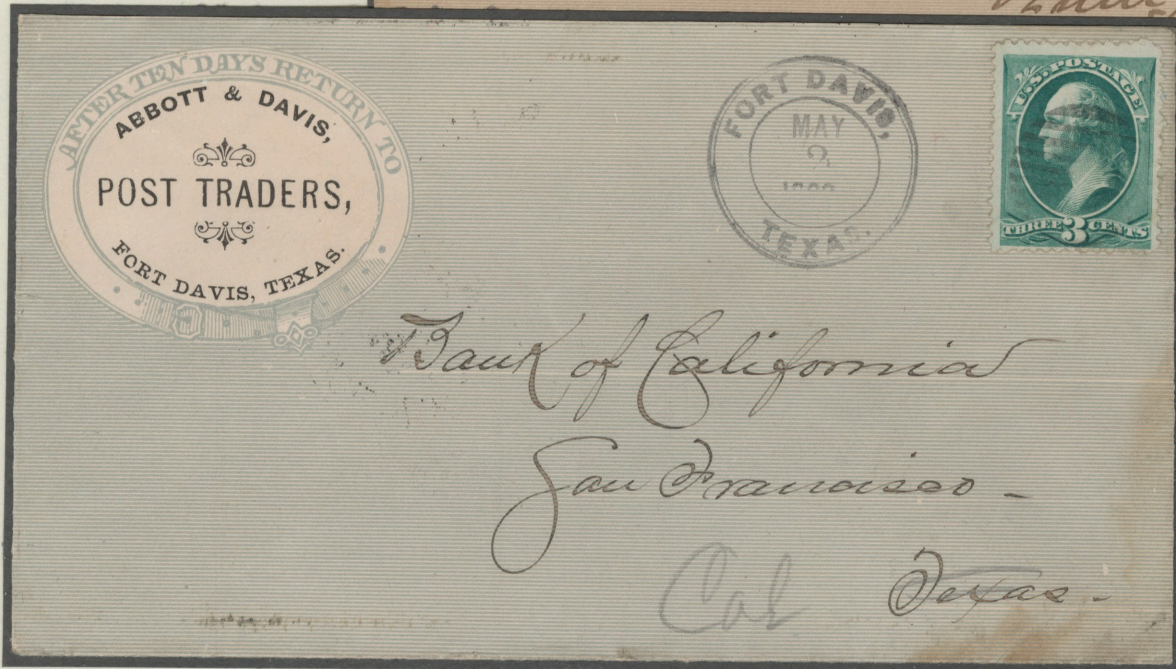 AFTER TEN DAYS RETURN TO
ABBOTT & DAVIS,
POST TRADERS,
FORT DAVIS, TEXAS.
FORT DAVIS,
MAY
TEXAS.
U.S. POSTAGE
THREE 3 CENTS
Bank of California
San Francisco -
Texas -
Cal